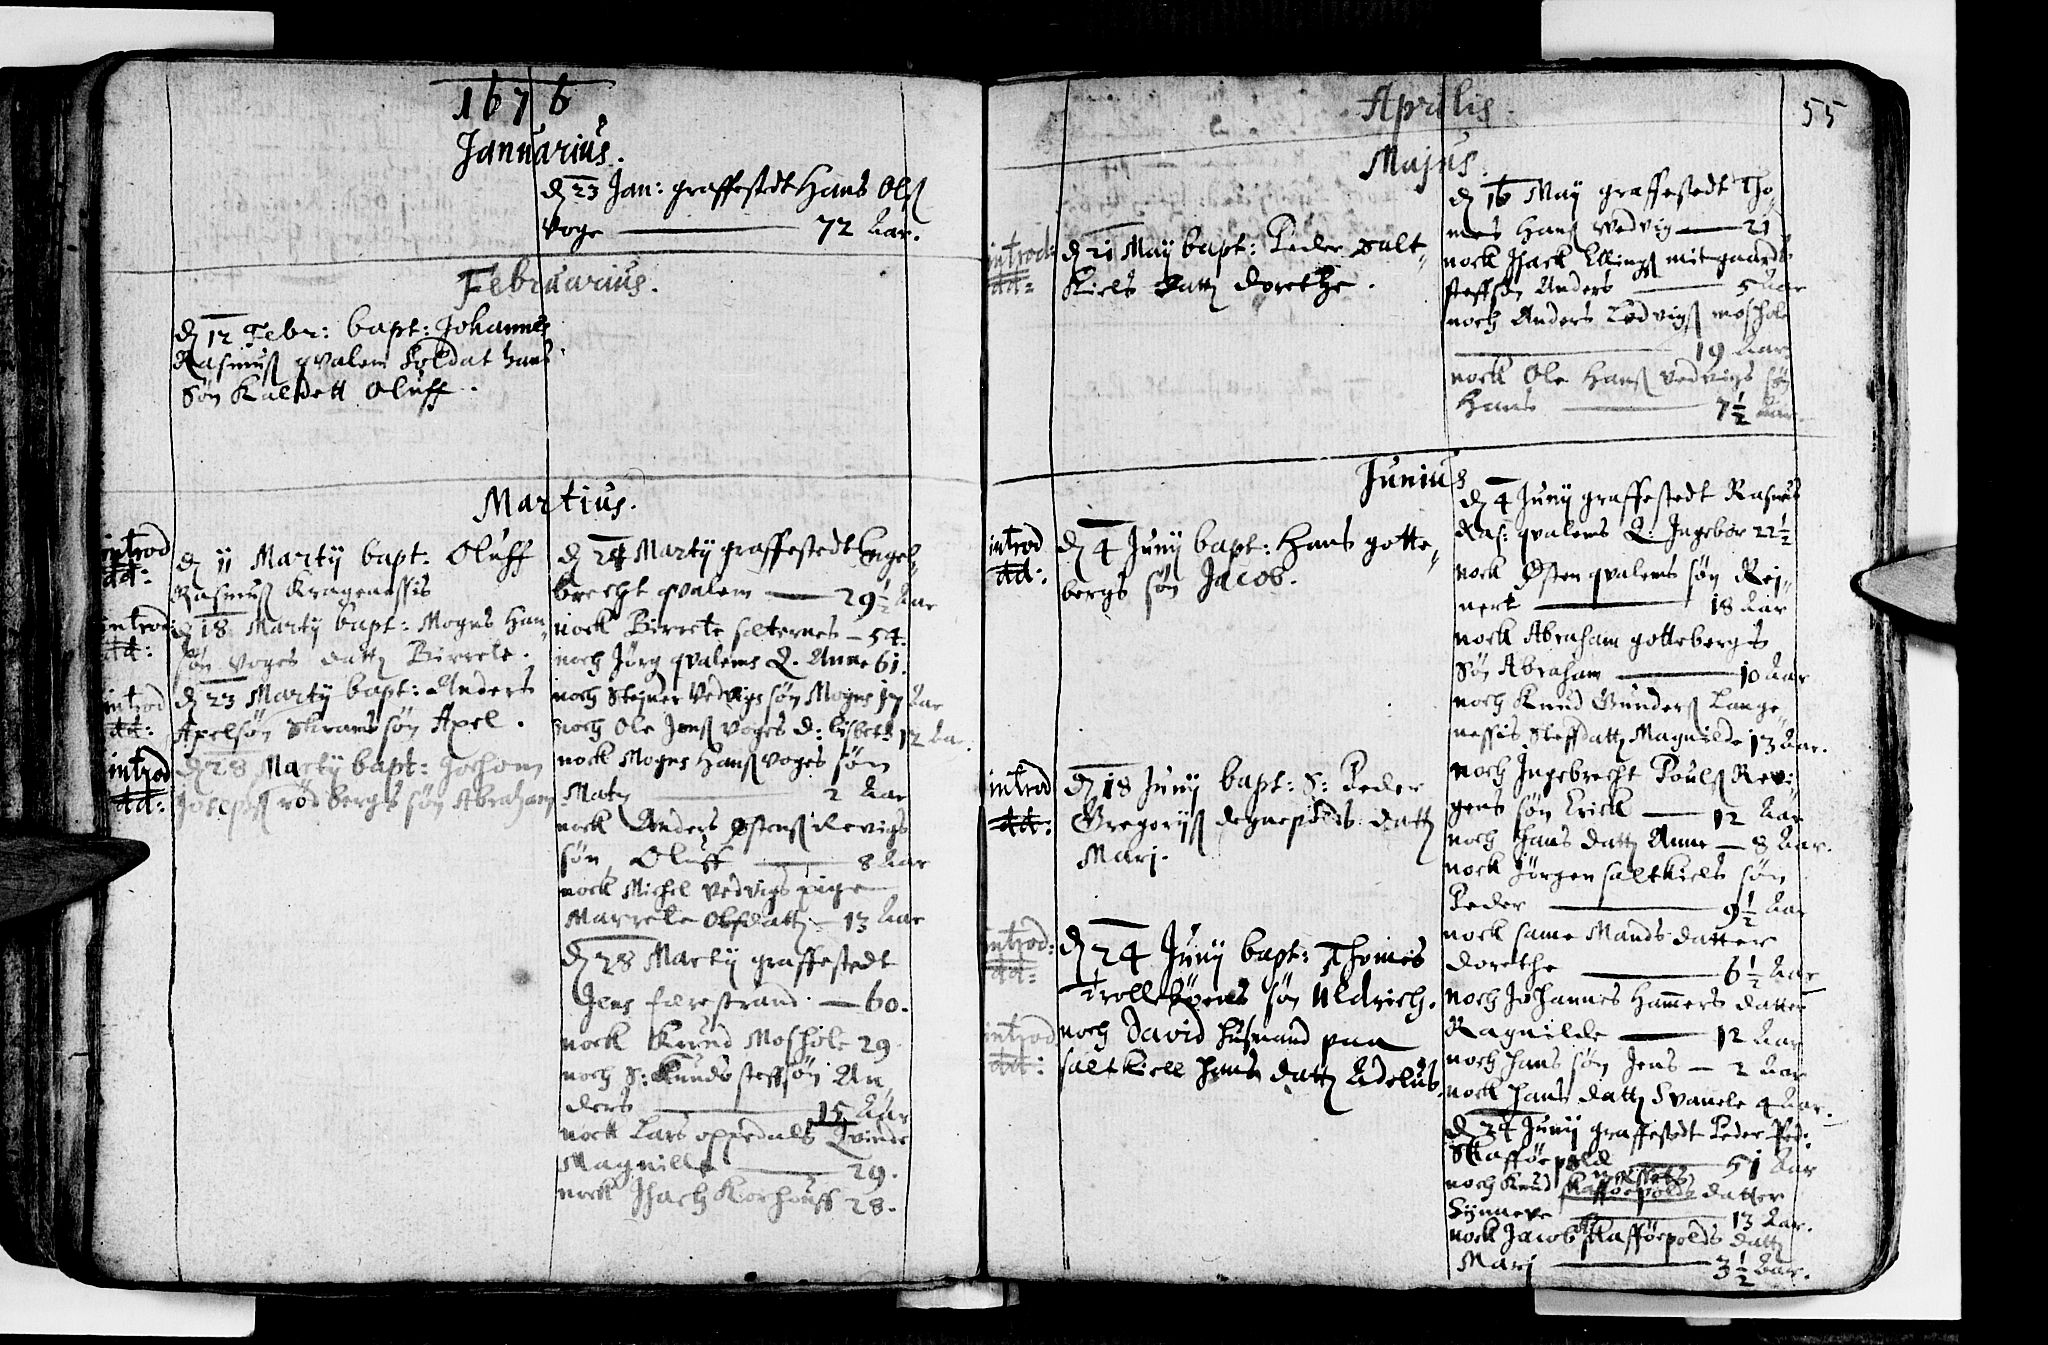 1676
Januarius.
d 23 Jan: graffestedt Hans Olß
Voge 72 Aar.
Februarius.
d 12 Febr: bapt: Johannes
Rasmuß qvalem Soldat hans
Søn Kaldett Oluff.
Martius.
introd
dd:
d 11 Martij bapt: Oluff
Rasmuß Kragenessis
introd:
dd:
d 18 Martij bapt: Mogns Han-
søn Voges datt Birrete.
introd
dd:
d 23 Martij bapt: Anders
Axelsøn Skrams søn Axel.
introd
dd:
d 28 Martij bapt: Jochom
Josepß rødbergs søn Abraham
d 24 Martij graffestedt Engel-
brecht qvalem 29½ Aar
nock Birrete salternes 54.
noch Jørg qvalems Q. Anne 61.
noch Stejner Vedvigs søn Mogns 17 Aar
noch Ole Jenß Voges d: Lisbeth 12 Aar.
nock Mogns Hanß Voges søn
Mats 2 Aar
nock Anders Østenß Revigs
søn Oluff 8 Aar
nock Michel Vedvigs pige
Marrete Olsdatt 13 Aar
d 28 Martij graffestedt
Jens færestrand 60.
nock Knud Moshole 29
noch S: Knuds steffsøn An
ders 15 Aar
nock Lars oppedals Qvinde
Magnille 29.
nock Isach Korhouff 28.
55
Aprilis.
Majus.
introd:
dd:
d 21 May bapt: Peder Salt-
kiels datt Dorethe.
d 16 May graffestedt Tho-
mes Hanß Vedvig 21
nock Isack Ellingß mitgaards
steffsøn Anders 5 Aar
noch Anders Ledvigß moshole
19 Aar
nock Ole Hanß Vedvigs søn
Hans 7½ Aar
Junius
introd
dd:
d 4 Junij bapt: Hans gotte-
bergs søn Jacob.
introd
dd:
d 18 Junij bapt: S: Peder
Gregorijß degnepods datt
Marj.
introd:
dd:
d 24 Junij bapt: Thomes
Trolleböens søn Uldrich.
introd
dd:
noch David husmand paa
saltkiell hans datt Adelus.
d 4 Junij graffestedt Rasmus
Ras: qvalems Q: Ingebor 22½
nock Østen qvalems søn Rej-
nert 18 Aar
nock Abraham gottebergs
søn Abraham 10 Aar
noch Knud Gunderß Lange-
nessis Steffdatt Magnilde 13 Aar.
noch Ingebrecht Poulß Revi-
gens søn Erick 12 Aar
noch hans datt Anne 8 Aar.
nock Jørgen saltkiels søn
Peder 9½ Aar
nock same Mands datter
Dorethe 6½ Aar
noch Johannes Hammers datter
Ragnilde 12 Aar
noch hans søn Jens 2 Aar
nock hans datt Svanele 4 Aar.
d 24 Junij graffestedt Peder Ped:
Skafføepold 51 Aar
noch Knud Skafføepolds datter
Synneve 13 Aar.
nock Jacob Skafføepolds datt
Marj 3½ Aar.